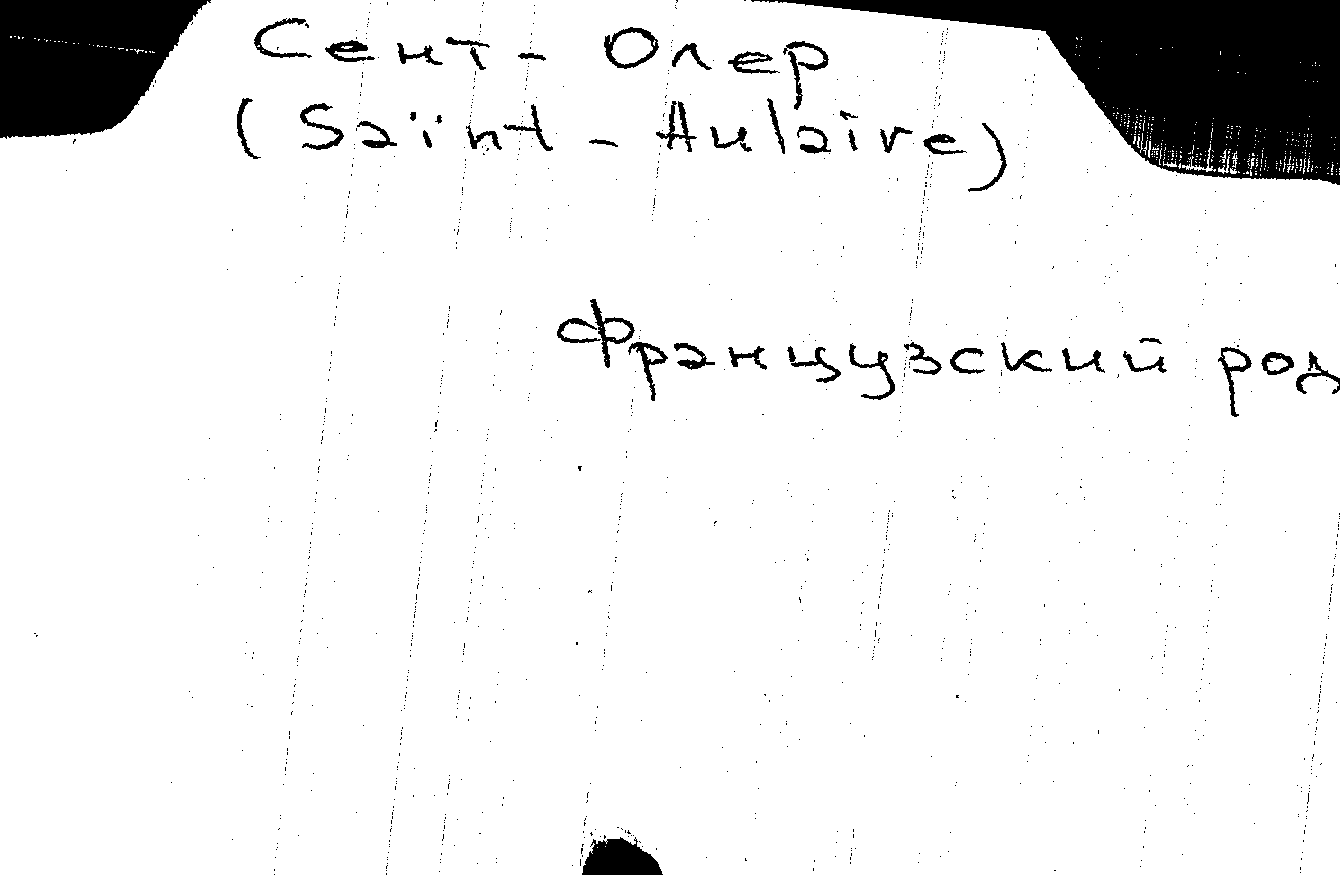 Сент - Олер
(Saint - Aulaire)
Французский род